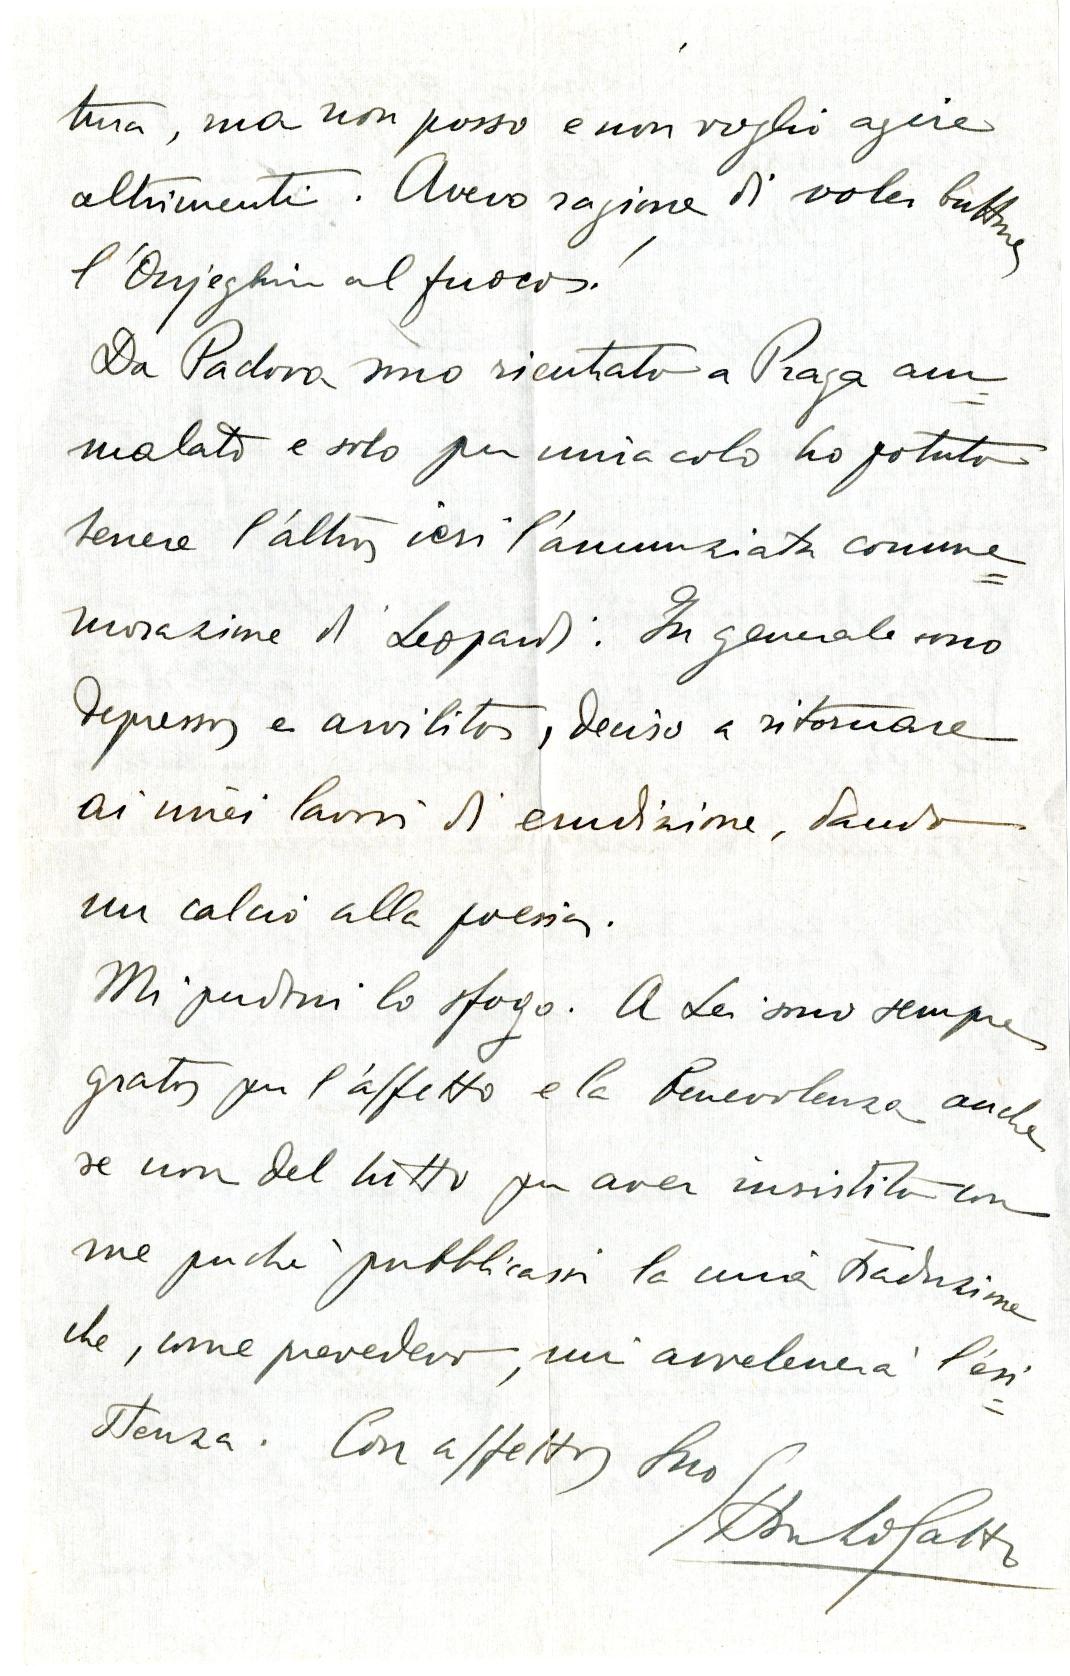 tura, ma non posso e non voglio agire
altrimenti. Avevo ragione di voler buttare
l'Onjeghin al fuoco!
Da Padova sono rientrato a Praga am=
malato e solo per miracolo ho potuto
tenere l'altro ieri l'annunziata comme=
morazione di Leopardi. In generale sono
depresso e avvilito, deciso a ritornare
ai miei lavori di erudizione, dando
un calcio alla poesia.
Mi perdoni lo sfogo. A Lei sono sempre
grato per l'affetto e la benevolenza anche
se non del tutto per aver insistito con
me perchè pubblicassi la mia traduzione
che, come prevedevo, mi avvelenerà l'esi=
stenza. Con affetto Suo
Ettore Lo Gatto